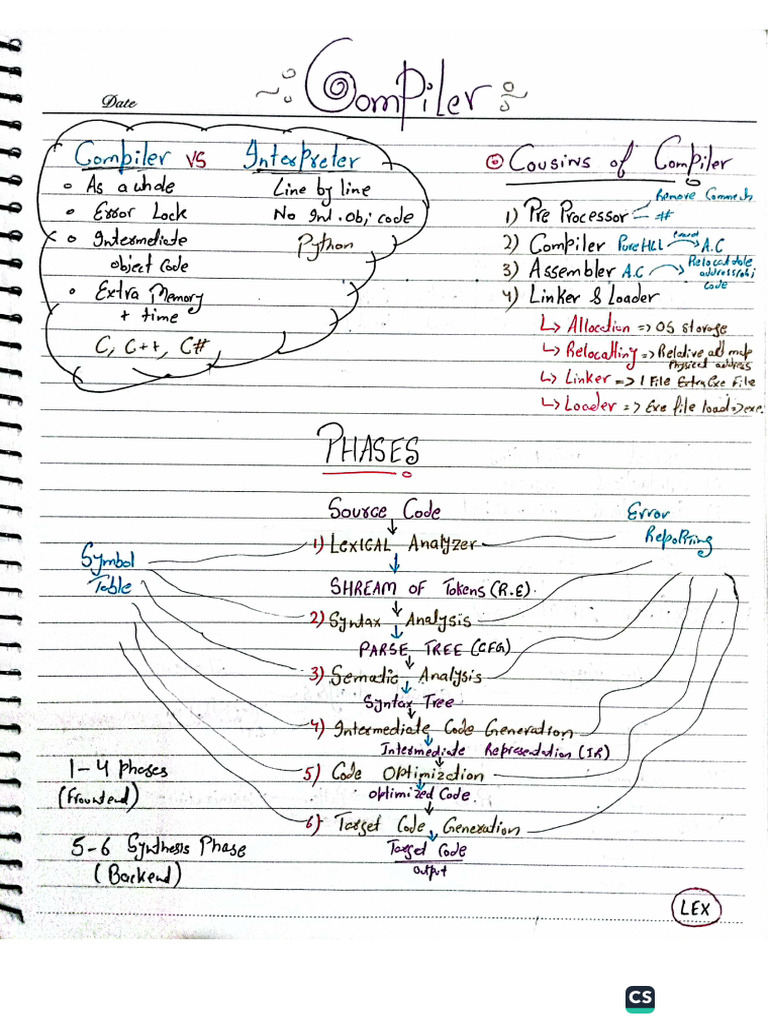 Compiler
Date
Compiler vs Interpreter
As a whole Line by line
Error Lock No Int. Obj code
Intermediate Python
object code
Extra Memory
+ time
C, C++, C#
Cousins of Compiler
Remove Comments
1) Pre Processor #
2) Compiler Pure HLL A.C
3) Assembler A.C Relocatable
address/obj
code
4) Linker & Loader
↳ Allocation => OS storage
↳ Relocatting => Relative add map
Physical address
↳ Linker => 1 File Extra Exe File
↳ Loader => Exe file load => exe.
PHASES
Source Code
Error
Repotting
1) LEXICAL Analyzer
Symbol
Table
SHREAM OF Tokens (R.E)
2) Syntax Analysis
PARSE TREE (CFG)
3) Sematic Analysis
Syntax Tree
4) Intermediate Code Generation
Intermediate Representation (IR)
5) Code Optimization
optimized Code.
6) Target Code Generation
Target Code
output
1-4 Phases
(Frountend)
5-6 Synthesis Phase
(Backend)
LEX
CS